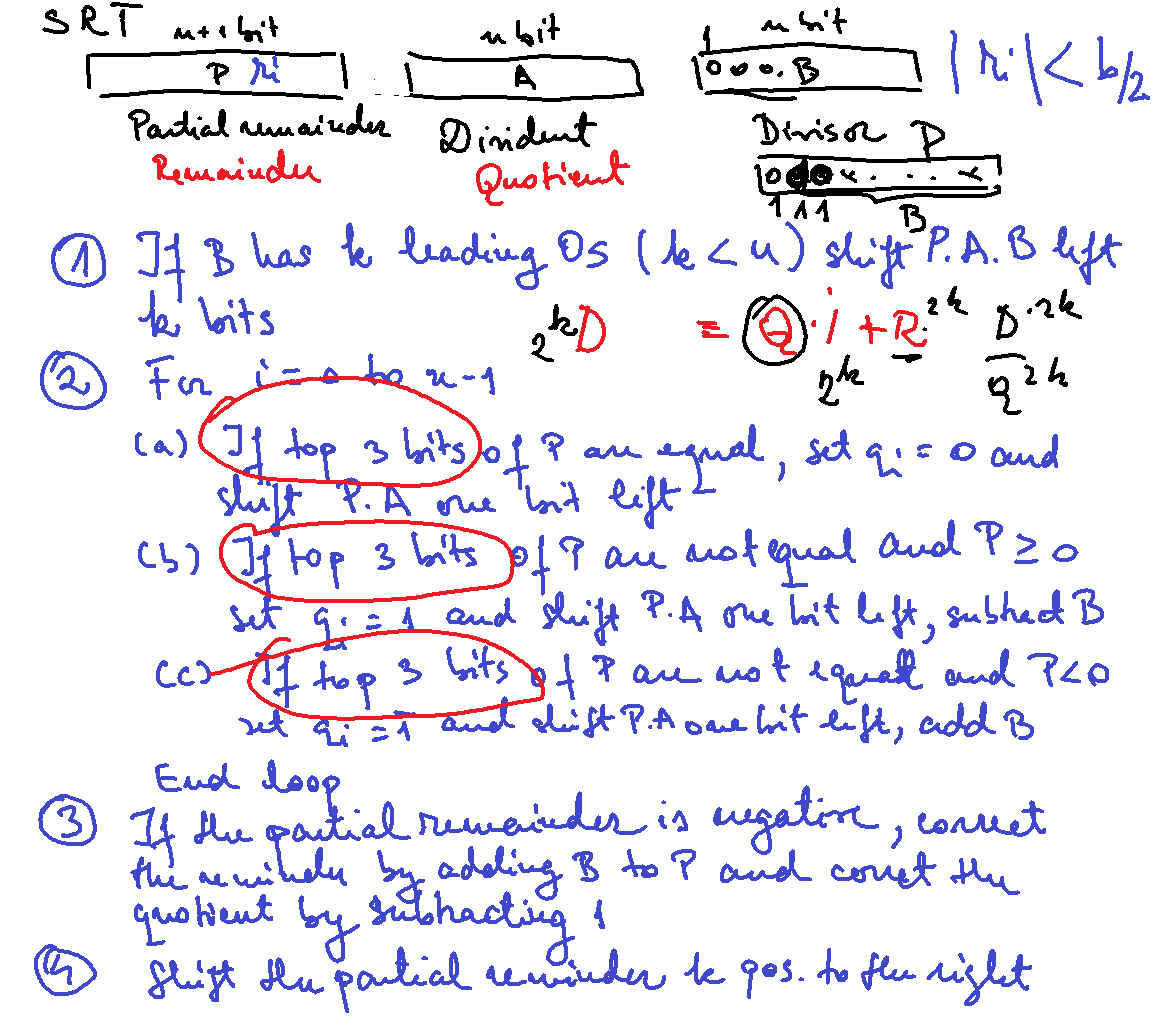 SRT n+1 bit n bit 1 n bit
P ri A 0 0 0 . B |ri| < b/2
Partial remainder Divident Divisor P
Remainder Quotient
0 x . . . . x
1 1 1 B
① If B has k leading 0s (k < n) shift P.A.B left
k bits 2^k D = Q · i + R · 2^k D · 2^k
2^k Q 2^k
② For i = 0 to n-1
(a) If top 3 bits of P are equal, set qi = 0 and
shift P.A one bit left
(b) If top 3 bits of P are not equal and P ≥ 0
set qi = 1 and shift P.A one bit left, subtract B
(c) If top 3 bits of P are not equal and P < 0
set qi = 1̄ and shift P.A one bit left, add B
End loop
③ If the partial remainder is negative, correct
the reminder by adding B to P and corret the
quotient by subtracting 1
④ Shift the partial reminder k pos. to the right